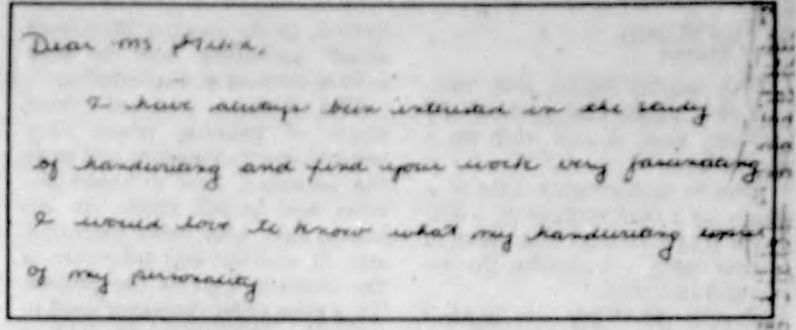 Dear Ms.
I have always been interested in the study
of handwriting and find your work very fascinating
I would love to know what my handwriting
of my personality